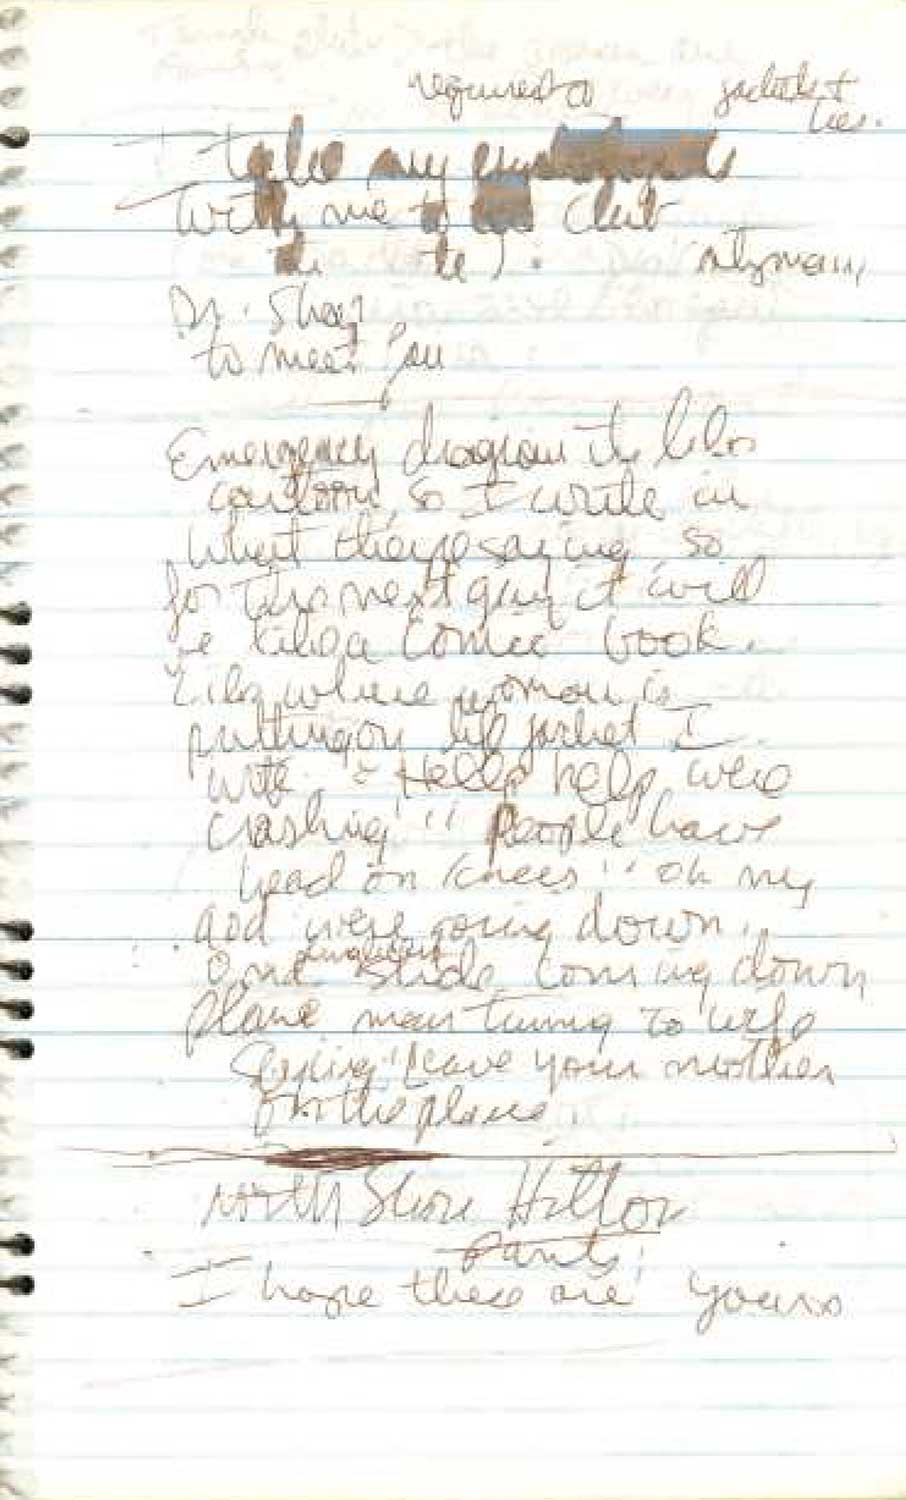 requires a jacket +
ties.
I take my
with me to Club
the ).
Dr. Shey
to meet you
Emergency diagram its like
cartoon, so I write in
what theyre saying so
for the next guy it will
be like a comic book.
Like where woman is
putting on life jacket I
write "Hellp help were
crashing" People have
head on knees "oh my
God were going down."
and slide coming down
plane man turning to wife
saying "Leave your mother
on the plane
North Shore Hilton
Pants!
I hope these are yours